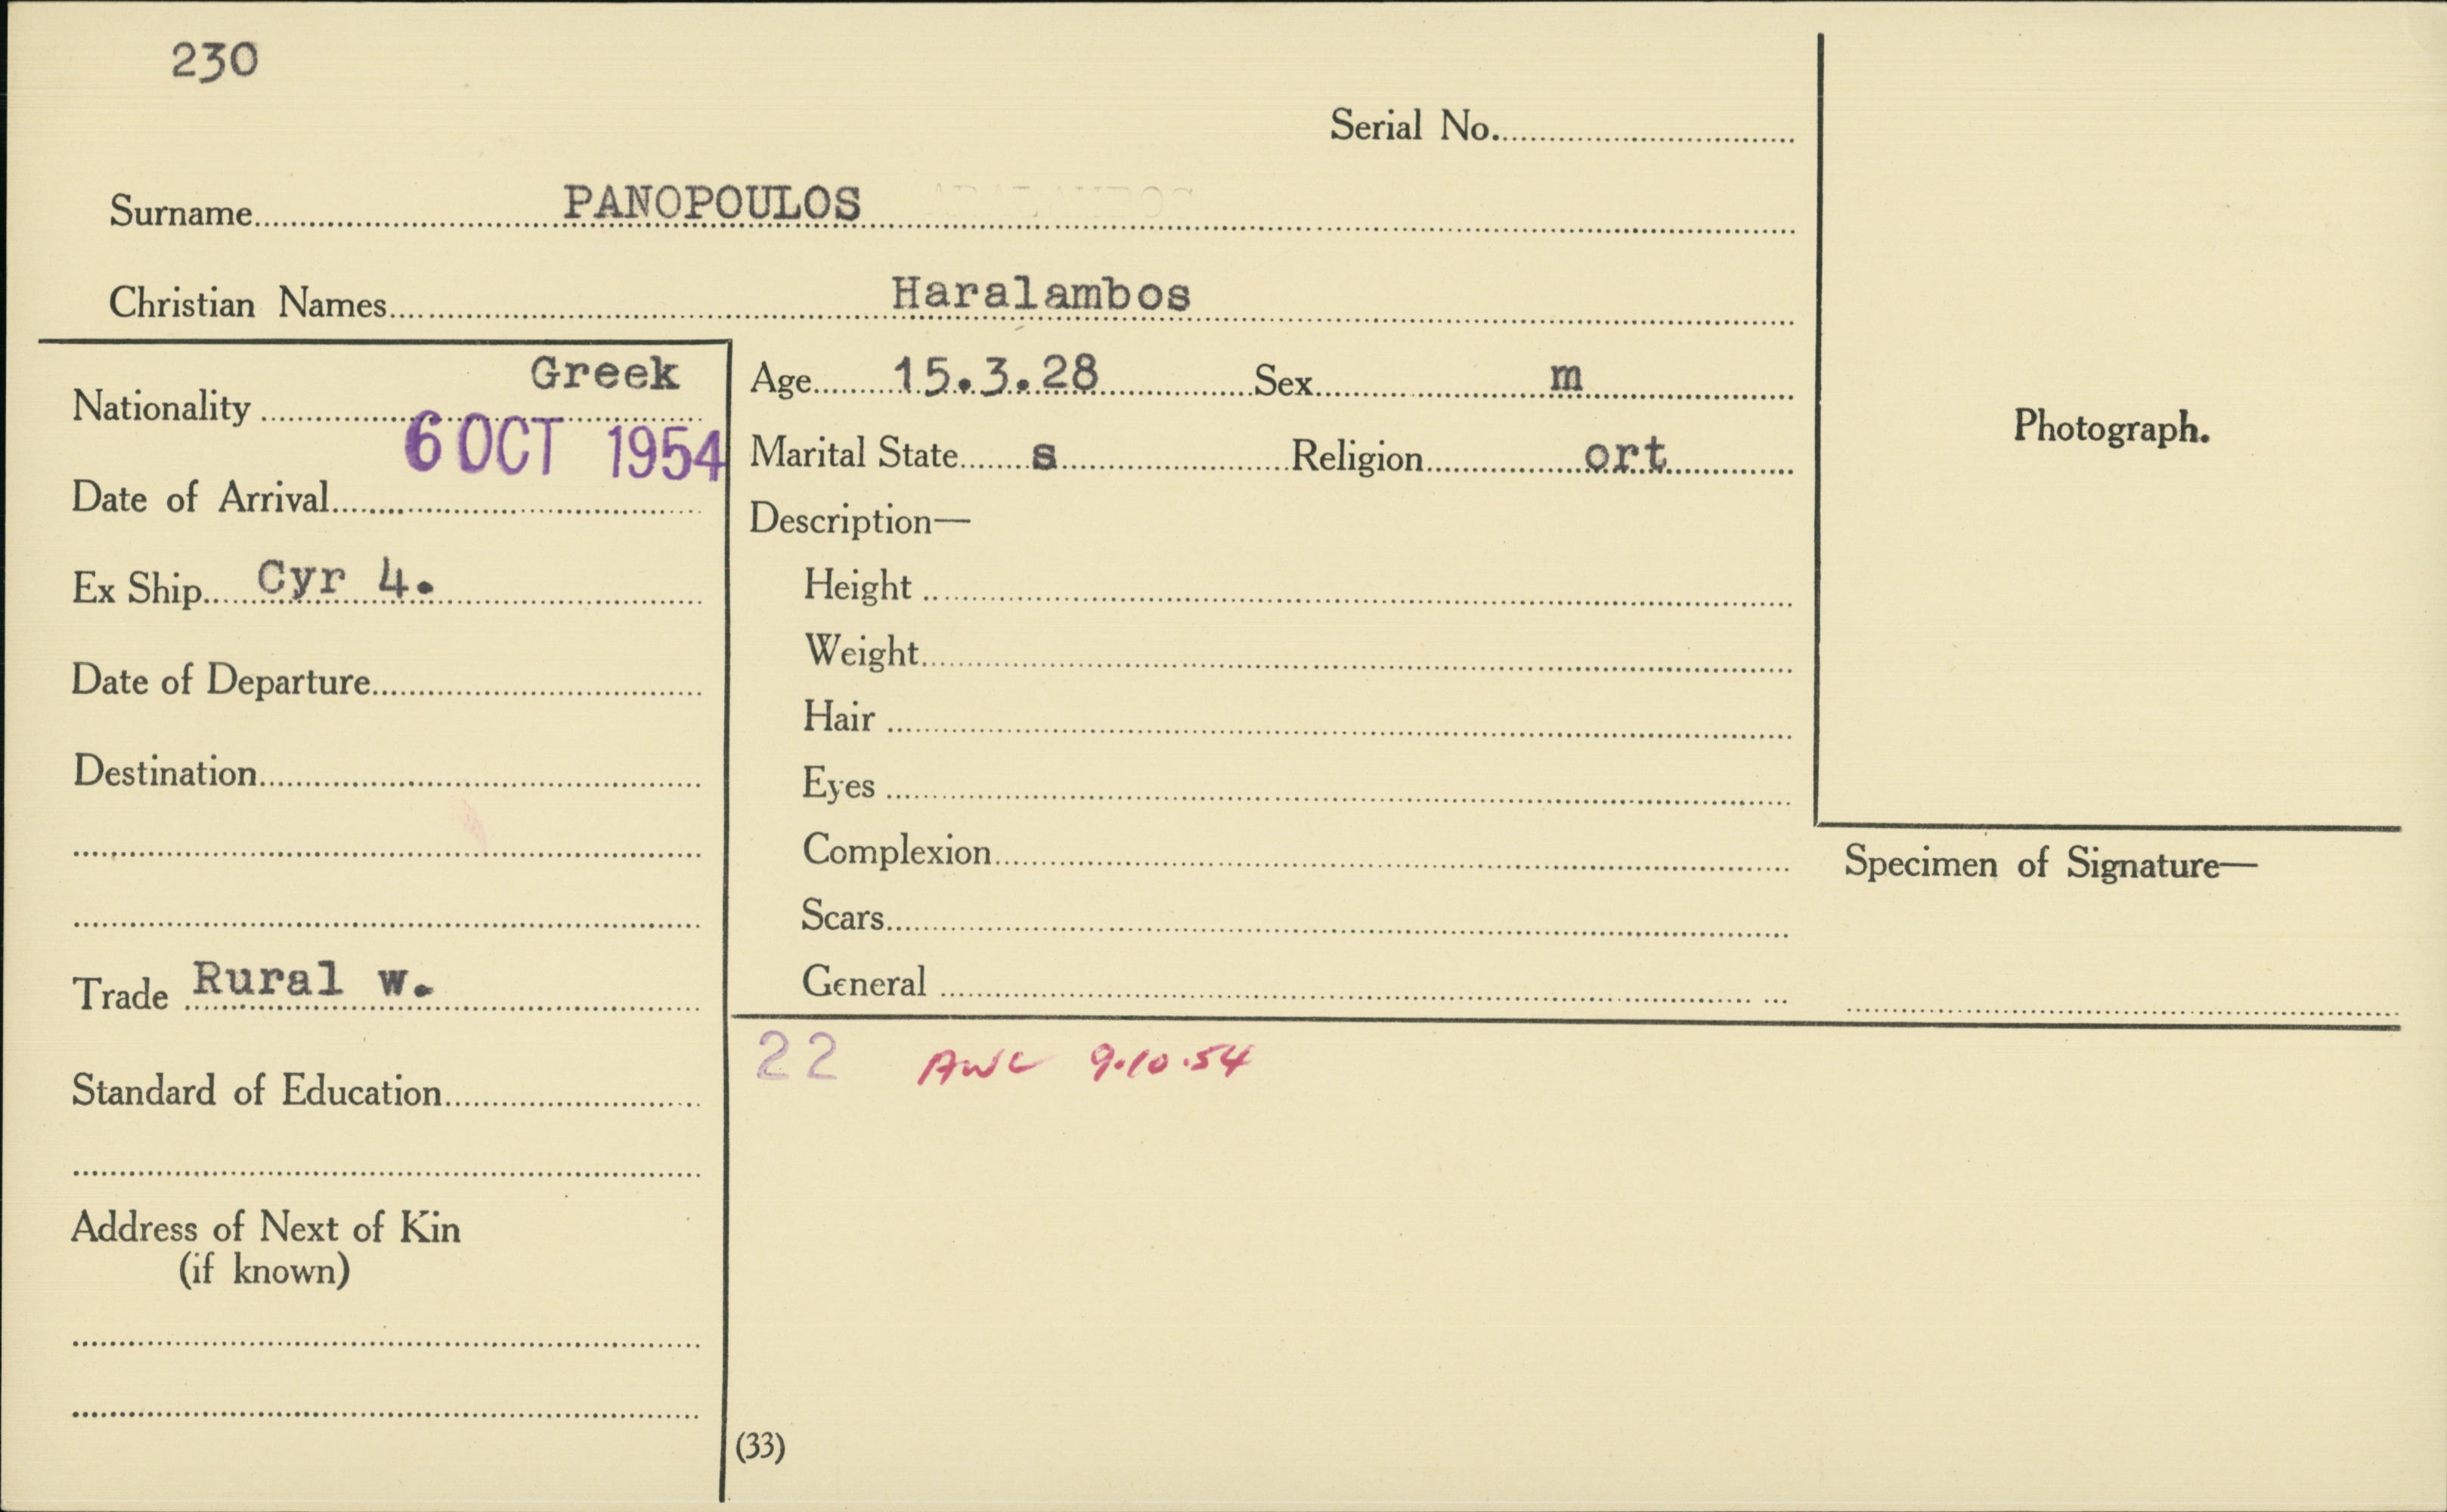 230
Serial No.
Surname PANOPOULOS
Christian Names Haralambos
Nationality Greek
6 OCT 1954
Date of Arrival
Ex Ship Cyr 4.
Date of Departure
Destination
Trade Rural w.
Standard of Education
Address of Next of Kin
(if known)
Age 15.3.28 Sex m
Marital State s Religion ort
Description—
Height
Weight
Hair
Eyes
Complexion
Scars
General
Photograph.
Specimen of Signature—
22 AWC 9.10.54
(33)